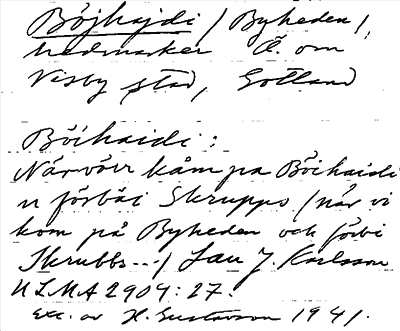 Böjhajdi / Byheden /,
hedmarker Ö. om
Visby stad, Gotland
Böihaidi:
Närvöir kåm pa Böihaidi
u förbäi Skrupps / när vi
kom på Byheden och förbi
Skrubbs --- / Lau J. Karlsson
ULMA 2904: 27.
Exc. av H. Gustavson 1941.